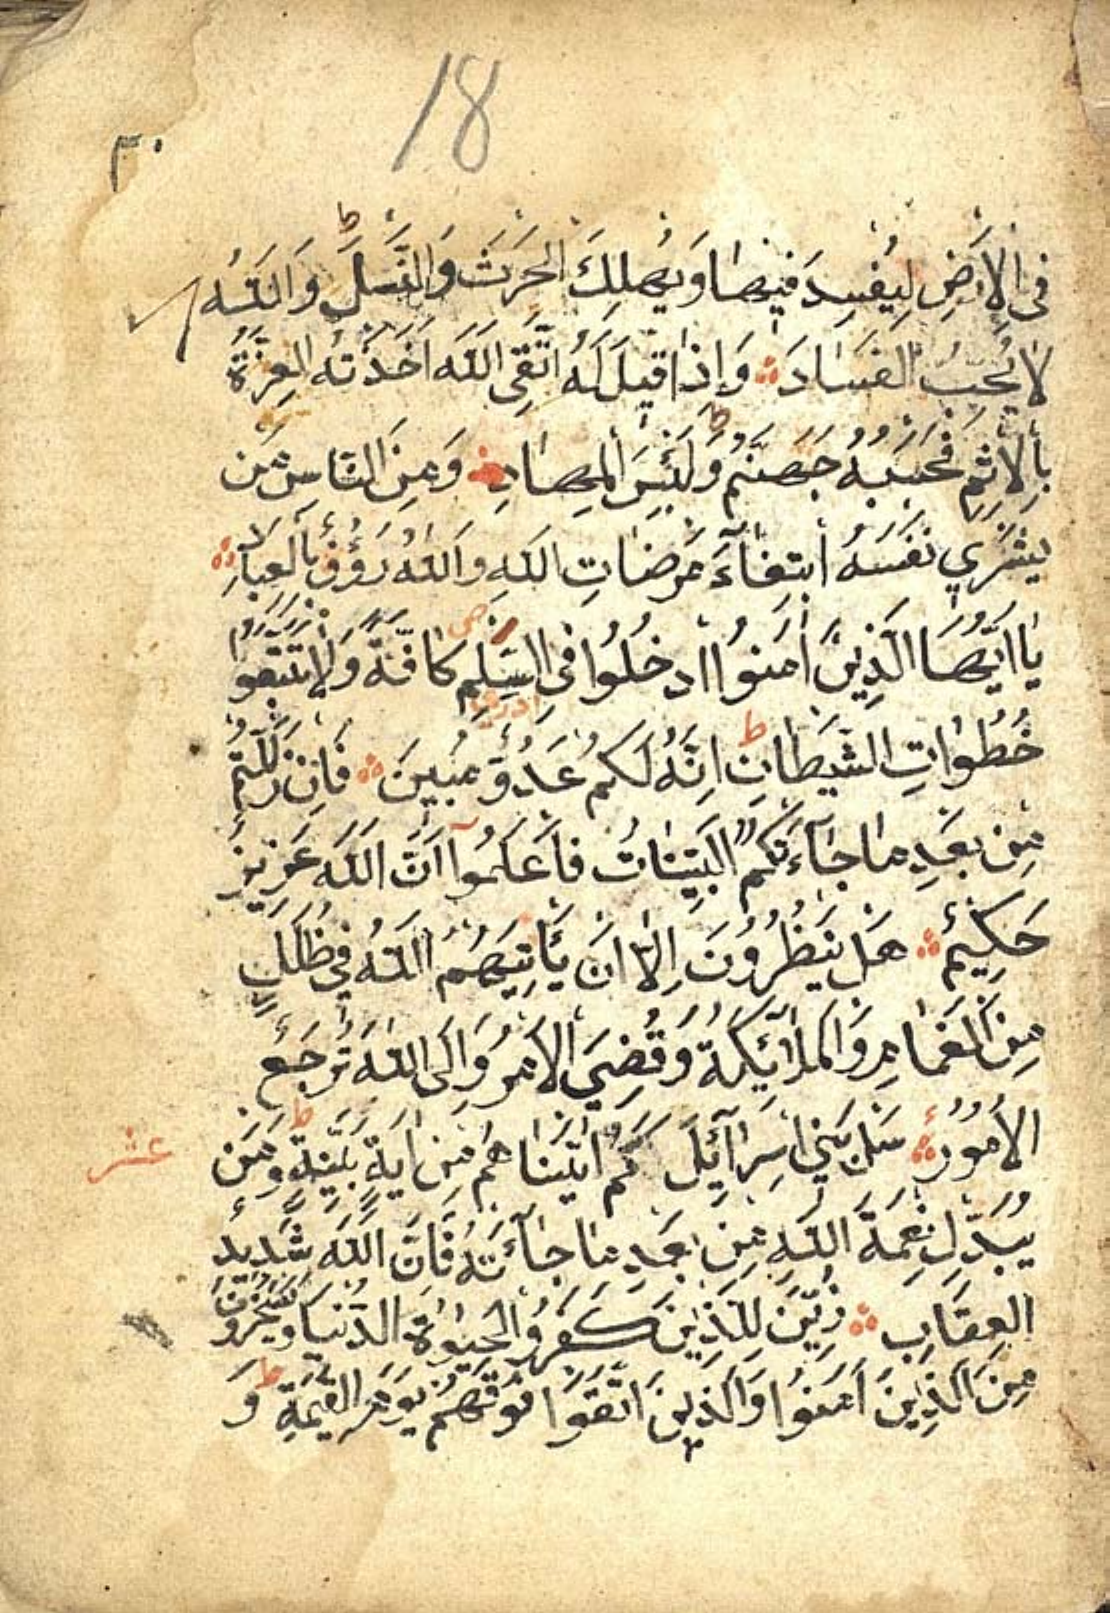 18
٣٠
فِى الْاَرْضِ لِيُفْسِدَ فِيهَا وَيُهْلِكَ الْحَرْثَ وَالنَّسْلَ ط وَاللّٰهُ
لَا يُحِبُّ الْفَسَادَ ۞ وَاِذَا قِيلَ لَهُ اتَّقِى اللّٰهَ اَخَذَتْهُ الْعِزَّةُ
بِالْاِثْمِ فَحَسْبُهُ جَهَنَّمُ ط وَلَبِئْسَ الْمِهَادِ ۞ وَمِنَ النَّاسِ مَنْ
يَشْرِي نَفْسَهُ ابْتِغَآءَ مَرْضَاتِ اللّٰهِ وَاللّٰهُ رَؤُفٌ بِالْعِبَادِ ۞
يَا اَيُّهَا الَّذِينَ اٰمَنُوا ادْخُلُوا فِى السِّلْمِ كَافَّةً وَلَا تَتَّبِعُوا
خُطُوَاتِ الشَّيْطَانِ ط اِنَّهُ لَكُمْ عَدُوٌّ مُبِينَ ۞ فَاِنْ زَلَلْتُمْ
مِنْ بَعْدِ مَا جَآءَتْكُمُ الْبَيِّنَاتُ فَاعْلَمُوا اَنَّ اللّٰهَ عَزِيزٌ
حَكِيمٌ ۞ هَلْ يَنْظُرُونَ اِلَّا اَنْ يَأْتِيَهُمُ اللّٰهُ فِي ظُلَلٍ
مِنَ الْغَمَامِ وَالْمَلَآئِكَةُ وَقُضِيَ الْاَمْرُ وَاِلَى اللّٰهِ تُرْجَعُ
الْاُمُورُ ۞ سَلْ بَنِي اِسْرَآئِلَ كَمْ اٰتَيْنَاهُمْ مِنْ اٰيَةٍ بَيِّنَةٍ ط وَمَنْ
عشر
يُبَدِّلْ نِعْمَةَ اللّٰهِ مِنْ بَعْدِ مَا جَآءَتْهُ فَاِنَّ اللّٰهَ شَدِيدُ
الْعِقَابِ ۞ زُيِّنَ لِلَّذِينَ كَفَرُوا الْحَيٰوةُ الدُّنْيَا وَيَسْخَرُونَ
مِنَ الَّذِينَ اٰمَنُوا وَالَّذِينَ اتَّقَوْا فَوْقَهُمْ يَوْمَ الْقِيٰمَةِ ط وَ